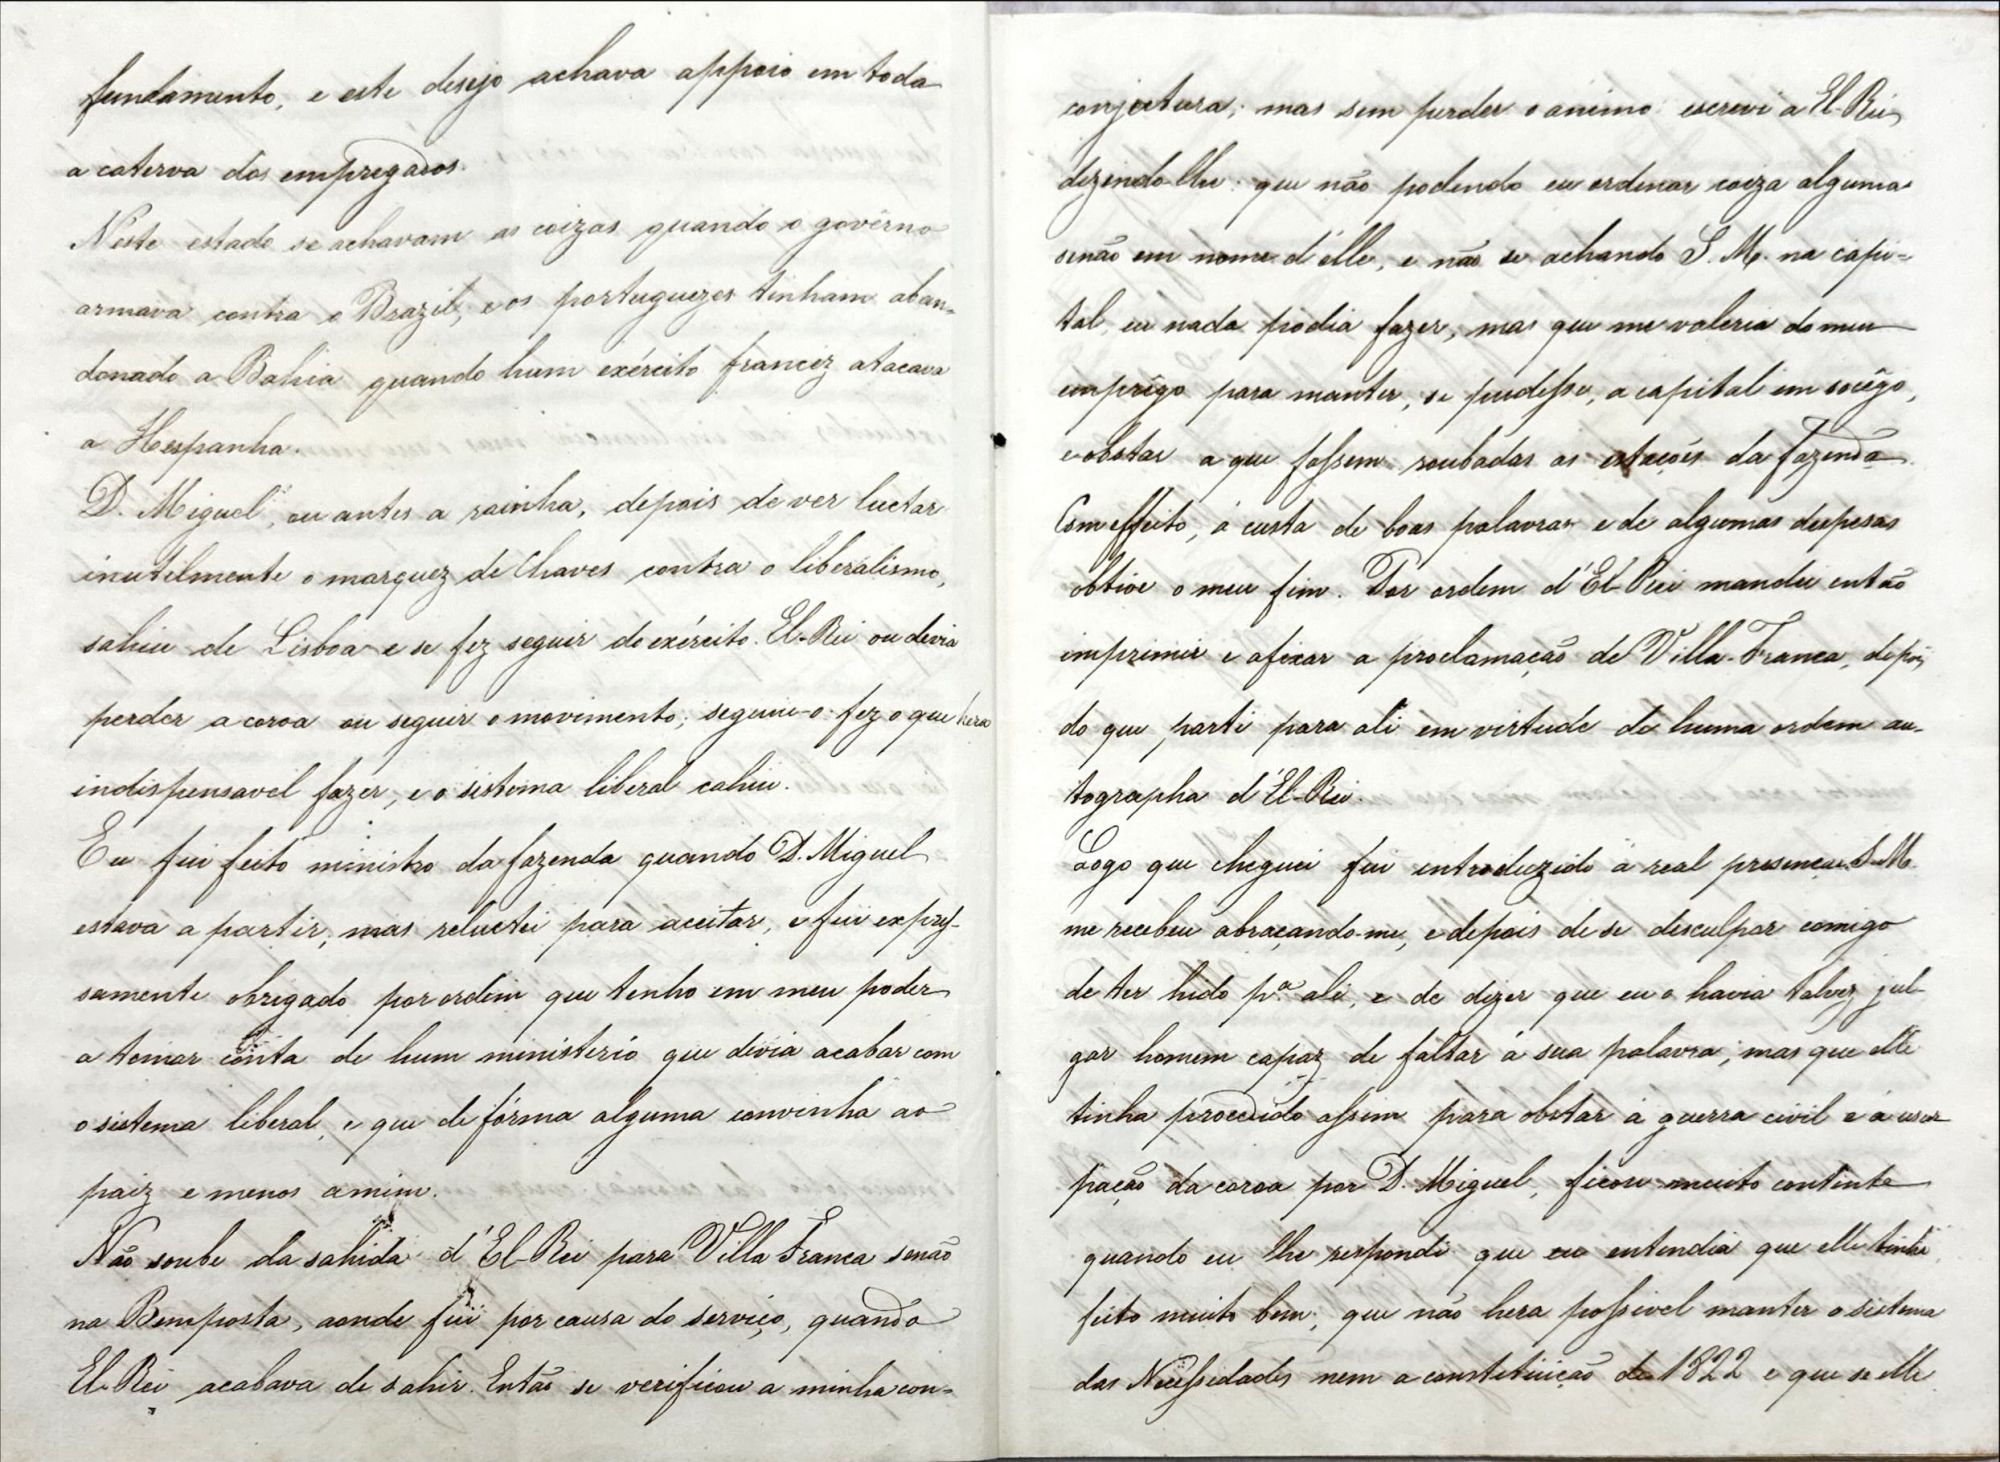 fundamento, e este desejo achava appoio em toda
a caterva dos empregados.
N'este estado se achavam as coizas quando o govêrno
armava contra o Brazil, e os portuguezes tinham aban-
donado a Bahia quando hum exército francez atacava
a Hespanha.
D. Miguel, ou antes a rainha, depois de ver luctar
inutilmente o marquez de Chaves contra o liberalismo,
sahiu de Lisboa e se fez seguir do exército. El-Rei ou devia
perder a coroa ou seguir o movimento; seguiu-o: fez o que hera
indispensavel fazer, e o sistema liberal cahiu.
Eu fui feito ministro da fazenda quando D. Miguel
estava a partir; mas reluctei para aceitar, e fui expres-
samente obrigado por ordem que tenho em meu poder
a tomar cônta de hum ministerio que devia acabar com
o sistema liberal, e que de fórma alguma convinha ao
paiz e menos a mim.
Não soube da sahida d'El-Rei para Villa Franca senão
na Bemposta, aonde fui por causa do serviço, quando
El-Rei acabava de sahir. Então se verificou a minha con-
conjectura; mas sem perder o animo escrevi a El-Rei,
dizendo-lhe: que não podendo eu ordenar coiza alguma
senão em nome d'elle, e não se achando S. M. na capi-
tal, eu nada podia fazer; mas que me valeria do meu
emprêgo para manter, se pudesse, a capital em socêgo,
e obstar a que fossem roubadas as estações da fazenda.
Com effeito, á custa de boas palavras e de algumas despesas
obtive o meu fim. Por ordem d'El-Rei mandei então
imprimir e afixar a proclamação de Villa-Franca, depois
do que, parti para ali em virtude de huma ordem au-
tographa d'El-Rei.
Logo que cheguei fui introduzido á real presença. S. M.
me recebeu abraçando-me, e depois de se desculpar comigo
de ter hido p.ª ali, e de dizer que eu o havia talvez jul-
gar homem capaz de faltar á sua palavra; mas que elle
tinha procedido assim para obstar á guerra civil e á usur-
pação da coroa por D. Miguel, ficou muito contente
quando eu lhe respondi que eu entendia que elle tinha
feito muito bem; que não hera possivel manter o sistema
das Necessidades nem a constituição de 1822 e que se elle